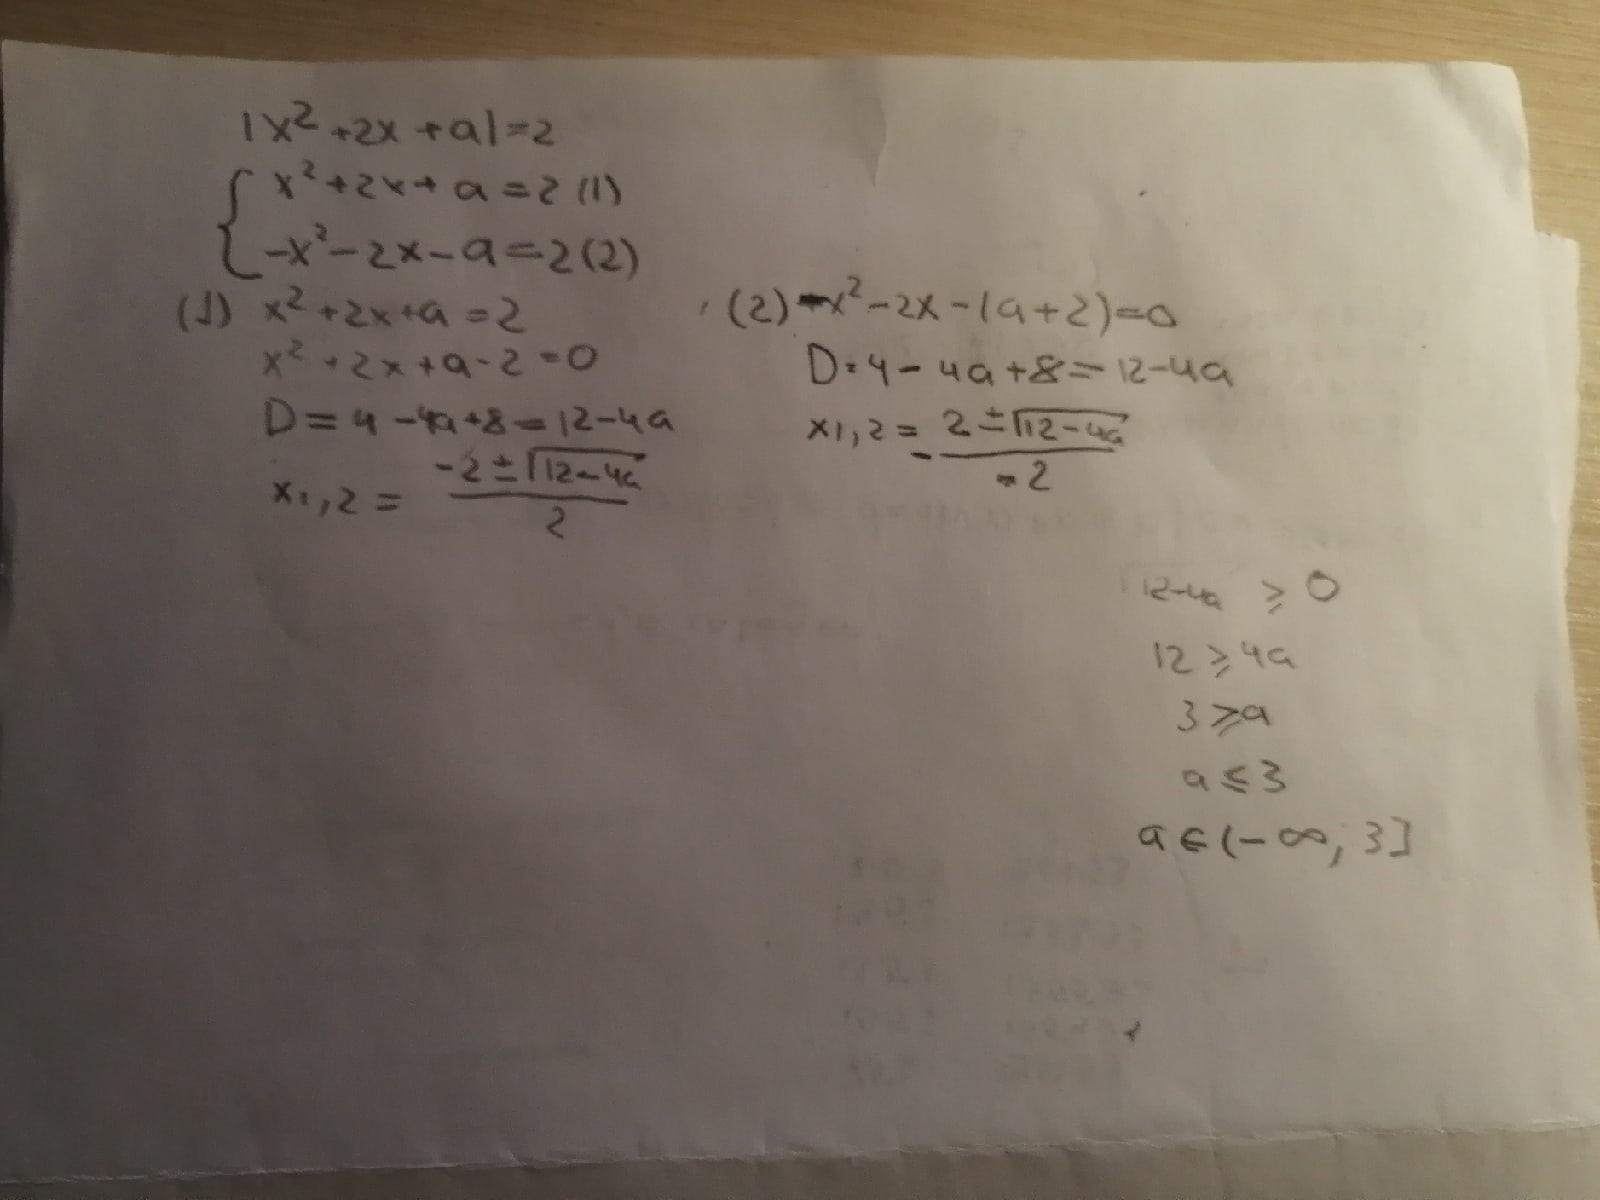 |x² + 2x + a| = 2
{ x² + 2x + a = 2 (1)
-x² - 2x - a = 2 (2)
(1) x² + 2x + a = 2
x² + 2x + a - 2 = 0
D = 4 - 4a + 8 = 12 - 4a
x1,2 = (-2 ± √(12 - 4a)) / 2
(2) -x² - 2x - (a + 2) = 0
D = 4 - 4a + 8 = 12 - 4a
x1,2 = - (2 ± √(12 - 4a)) / -2
12 - 4a ⩾ 0
12 ⩾ 4a
3 ⩾ a
a ⩽ 3
a ∈ (-∞; 3]